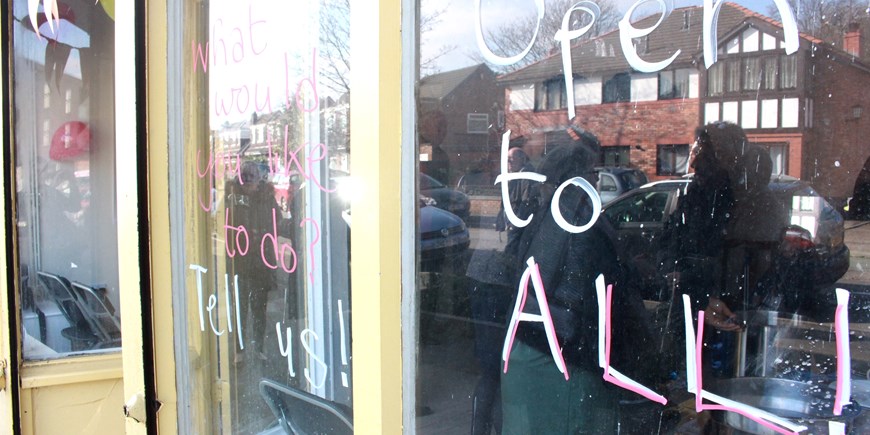 what
would
you like
to do?
Tell
us!
Open
to
ALL!